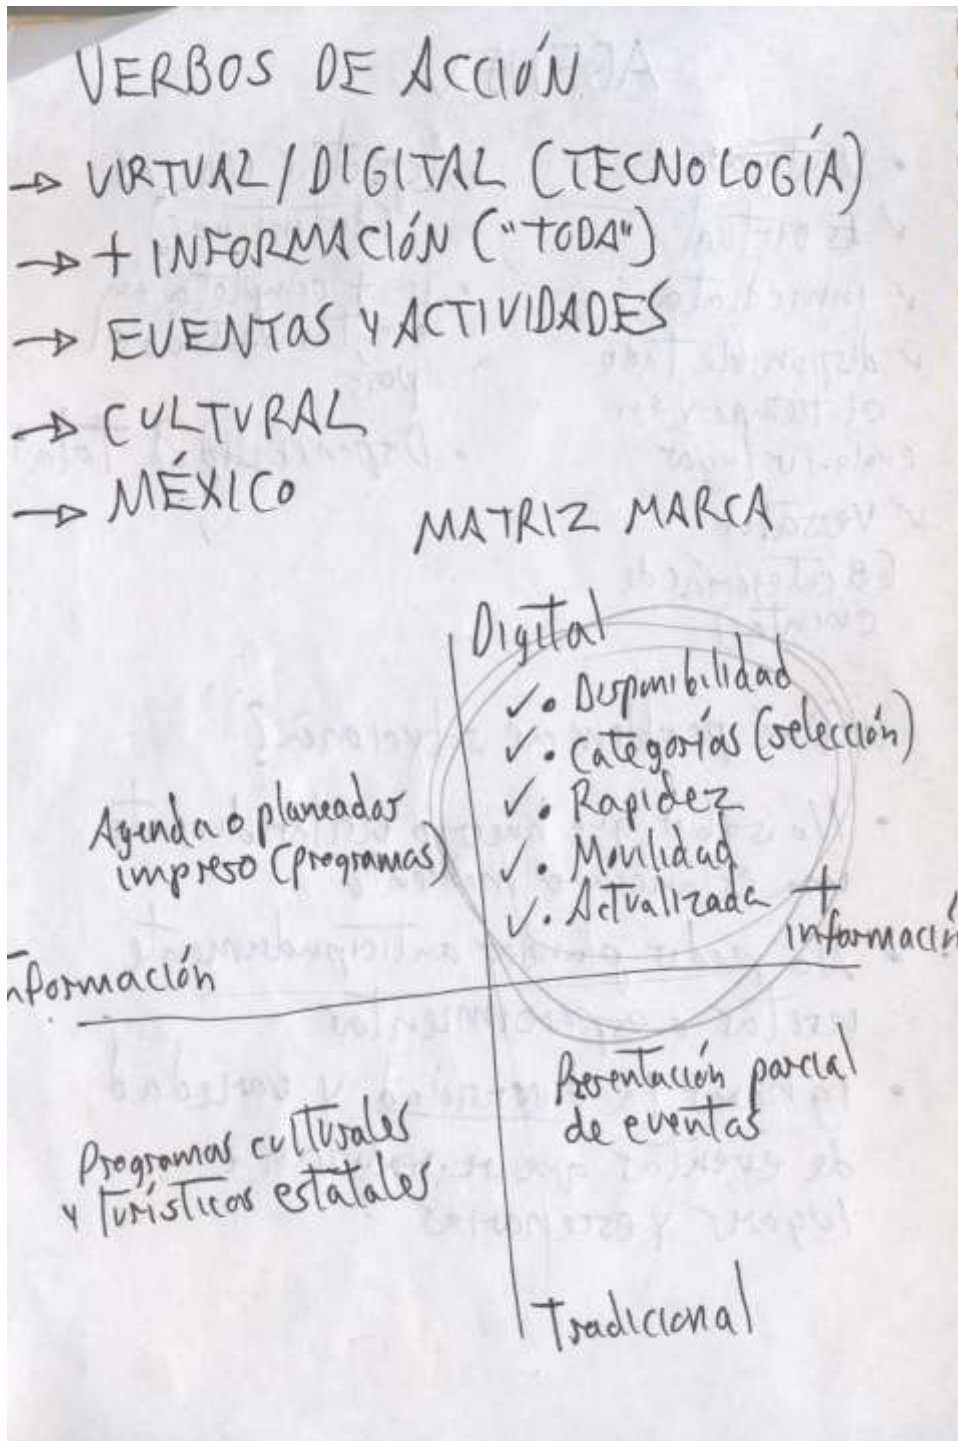 VERBOS DE ACCIÓN
→ VIRTUAL / DIGITAL (TECNOLOGÍA)
→ + INFORMACIÓN ("TODA")
→ EVENTOS Y ACTIVIDADES
→ CULTURAL
→ MÉXICO
MATRIZ MARCA
Digital
✓ • Disponibilidad
✓ • Categorías (selección)
✓ • Rapidez
✓ • Movilidad
✓ • Actualizada
Agenda o planeador
impreso (programas)
+
informació
nformación
Presentación parcial
de eventos
Programas culturales
y turísticos estatales
Tradicional